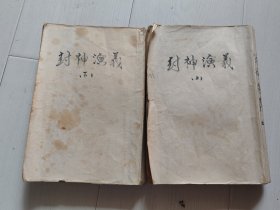 封神演義
(下)
封神演義
(上)